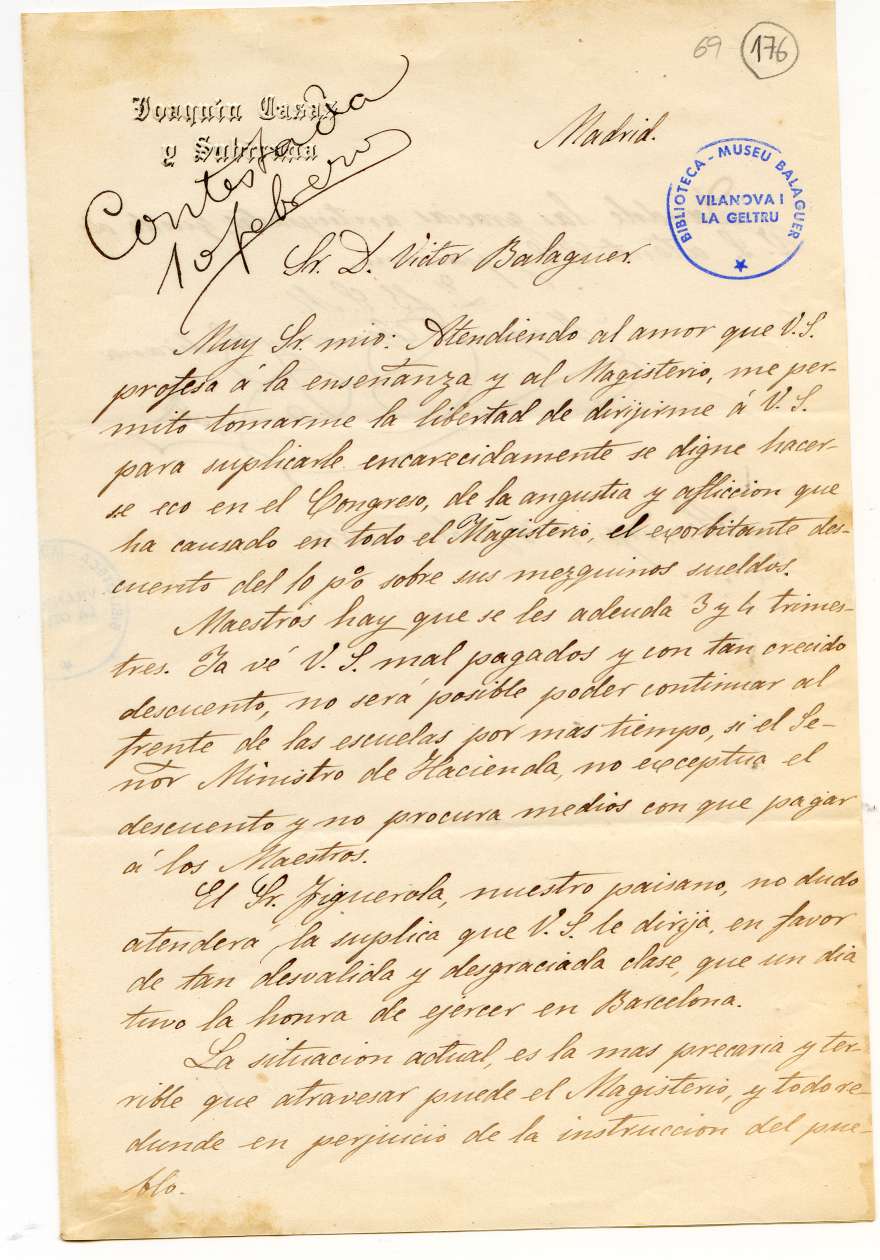 69 176
Joaquín Casas
y Subirana
Contestada
10 febrero
Madrid.
BIBLIOTECA - MUSEU BALAGUER
VILANOVA I
LA GELTRU
Sr. D. Victor Balaguer.
Muy Sr. mio: Atendiendo al amor que V. S.
profesa á la enseñanza y al Magisterio, me per-
mito tomarme la libertad de dirijirme á V. S.
para suplicarle encarecidamente se digne hacer-
se eco en el Congreso, de la angustia y afliccion que
ha causado en todo el Magisterio, el exorbitante des-
cuento del 10 p% sobre sus mezquinos sueldos.
Maestros hay que se les adeuda 3 y 4 trimes-
tres. Ya vé V. S. mal pagados y con tan crecido
descuento, no será posible poder continuar al
frente de las escuelas por mas tiempo, si el Se-
ñor Ministro de Hacienda, no exceptua el
descuento y no procura medios con que pagar
á los Maestros.
El Sr. Figuerola, nuestro paisano, no dudo
atenderá la suplica que V. S. le dirija, en favor
de tan desvalida y desgraciada clase, que un dia
tuvo la honra de ejercer en Barcelona.
La situacion actual, es la mas precaria y ter-
rible que atravesar puede el Magisterio, y todo re-
dunde en perjuicio de la instruccion del pue-
blo.